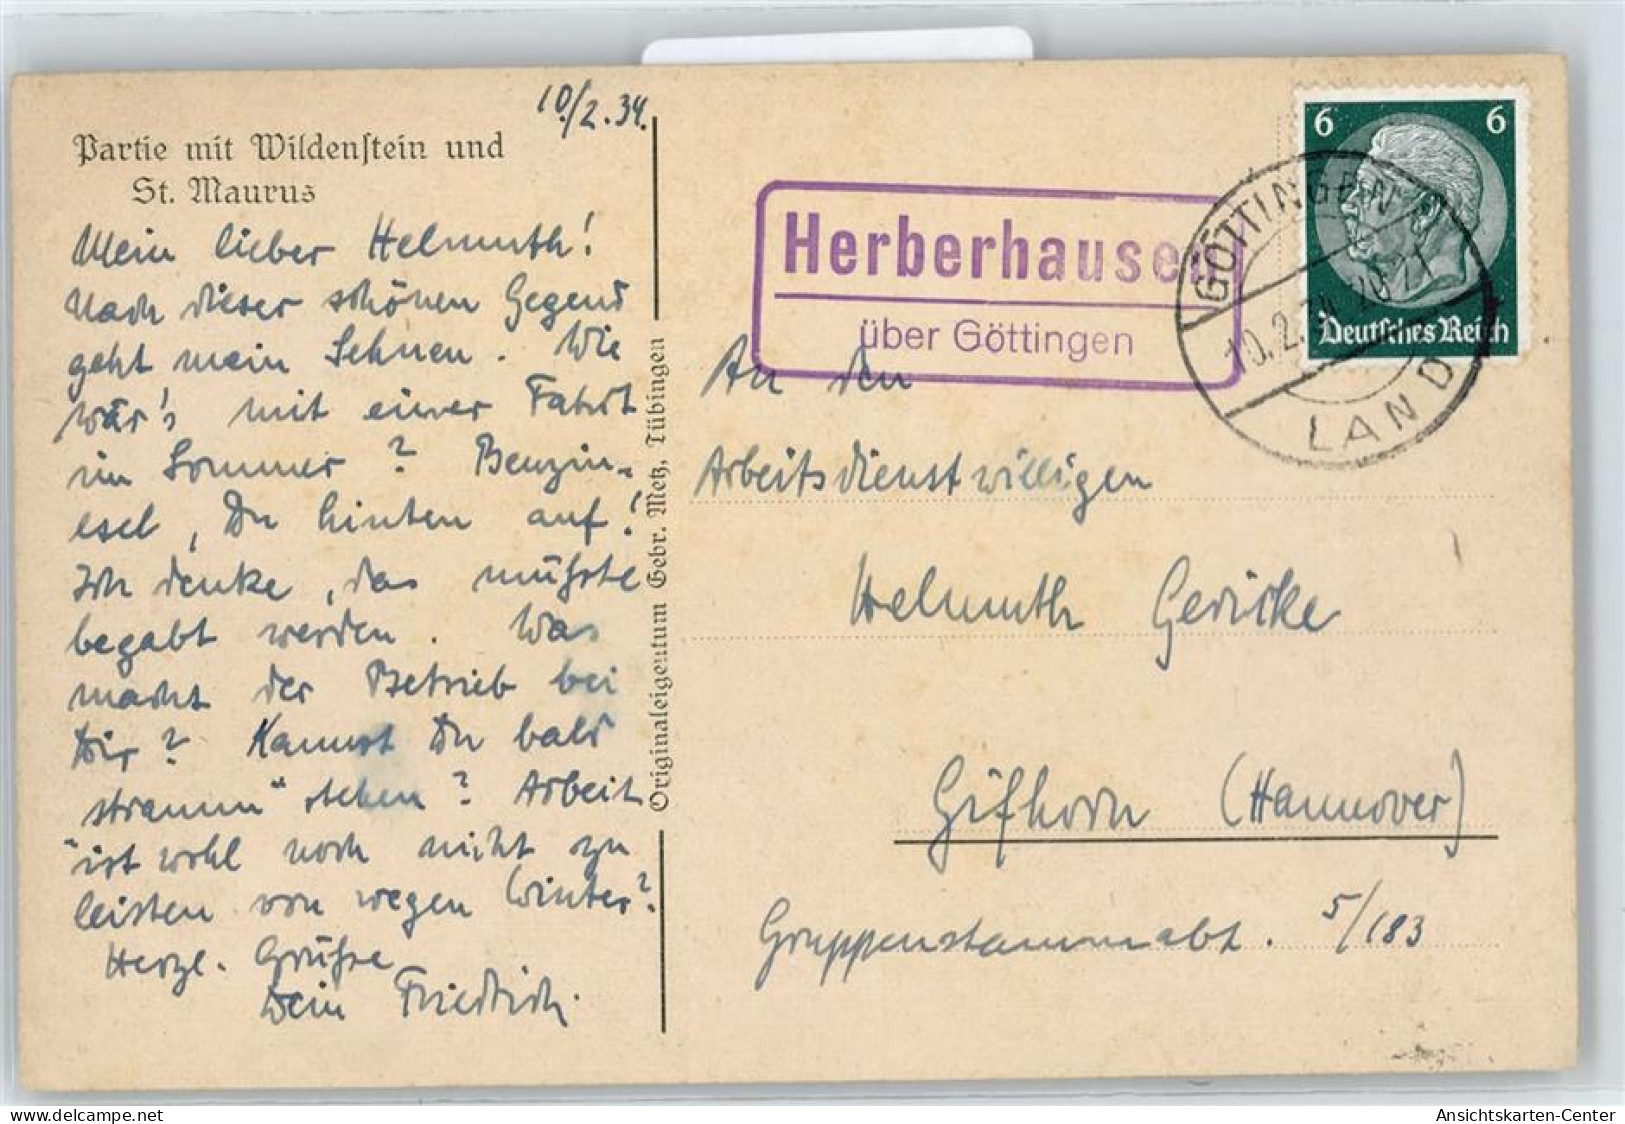 10./2.34.
Partie mit Wildenstein und
St. Maurus
Mein lieber Helmuth!
Nach dieser schönen Gegend
geht mein Sehnen. Wie
wär's mit einer Fahrt
im Sommer? Benzin-
esel, Du hinten auf!
Ich denke, das müsste
begabt werden. Was
macht der Betrieb bei
Dir? Kannst Du bald
"stramm" stehen? Arbeit
ist wohl noch nicht zu
leisten von wegen Winter?
Herzl. Grüsse
Dein Friedrich.
Originaleigentum Gebr. Metz, Tübingen
Herberhausen
über Göttingen
6 6
Deutsches Reich
GÖTTINGEN
10.2.34
LAND
An den
Arbeitsdienstwilligen
Helmuth Gericke
Gifhorn (Hannover)
Gruppenstammabt. 5/183
www.oldthing.de
Ansichtskarten-Center